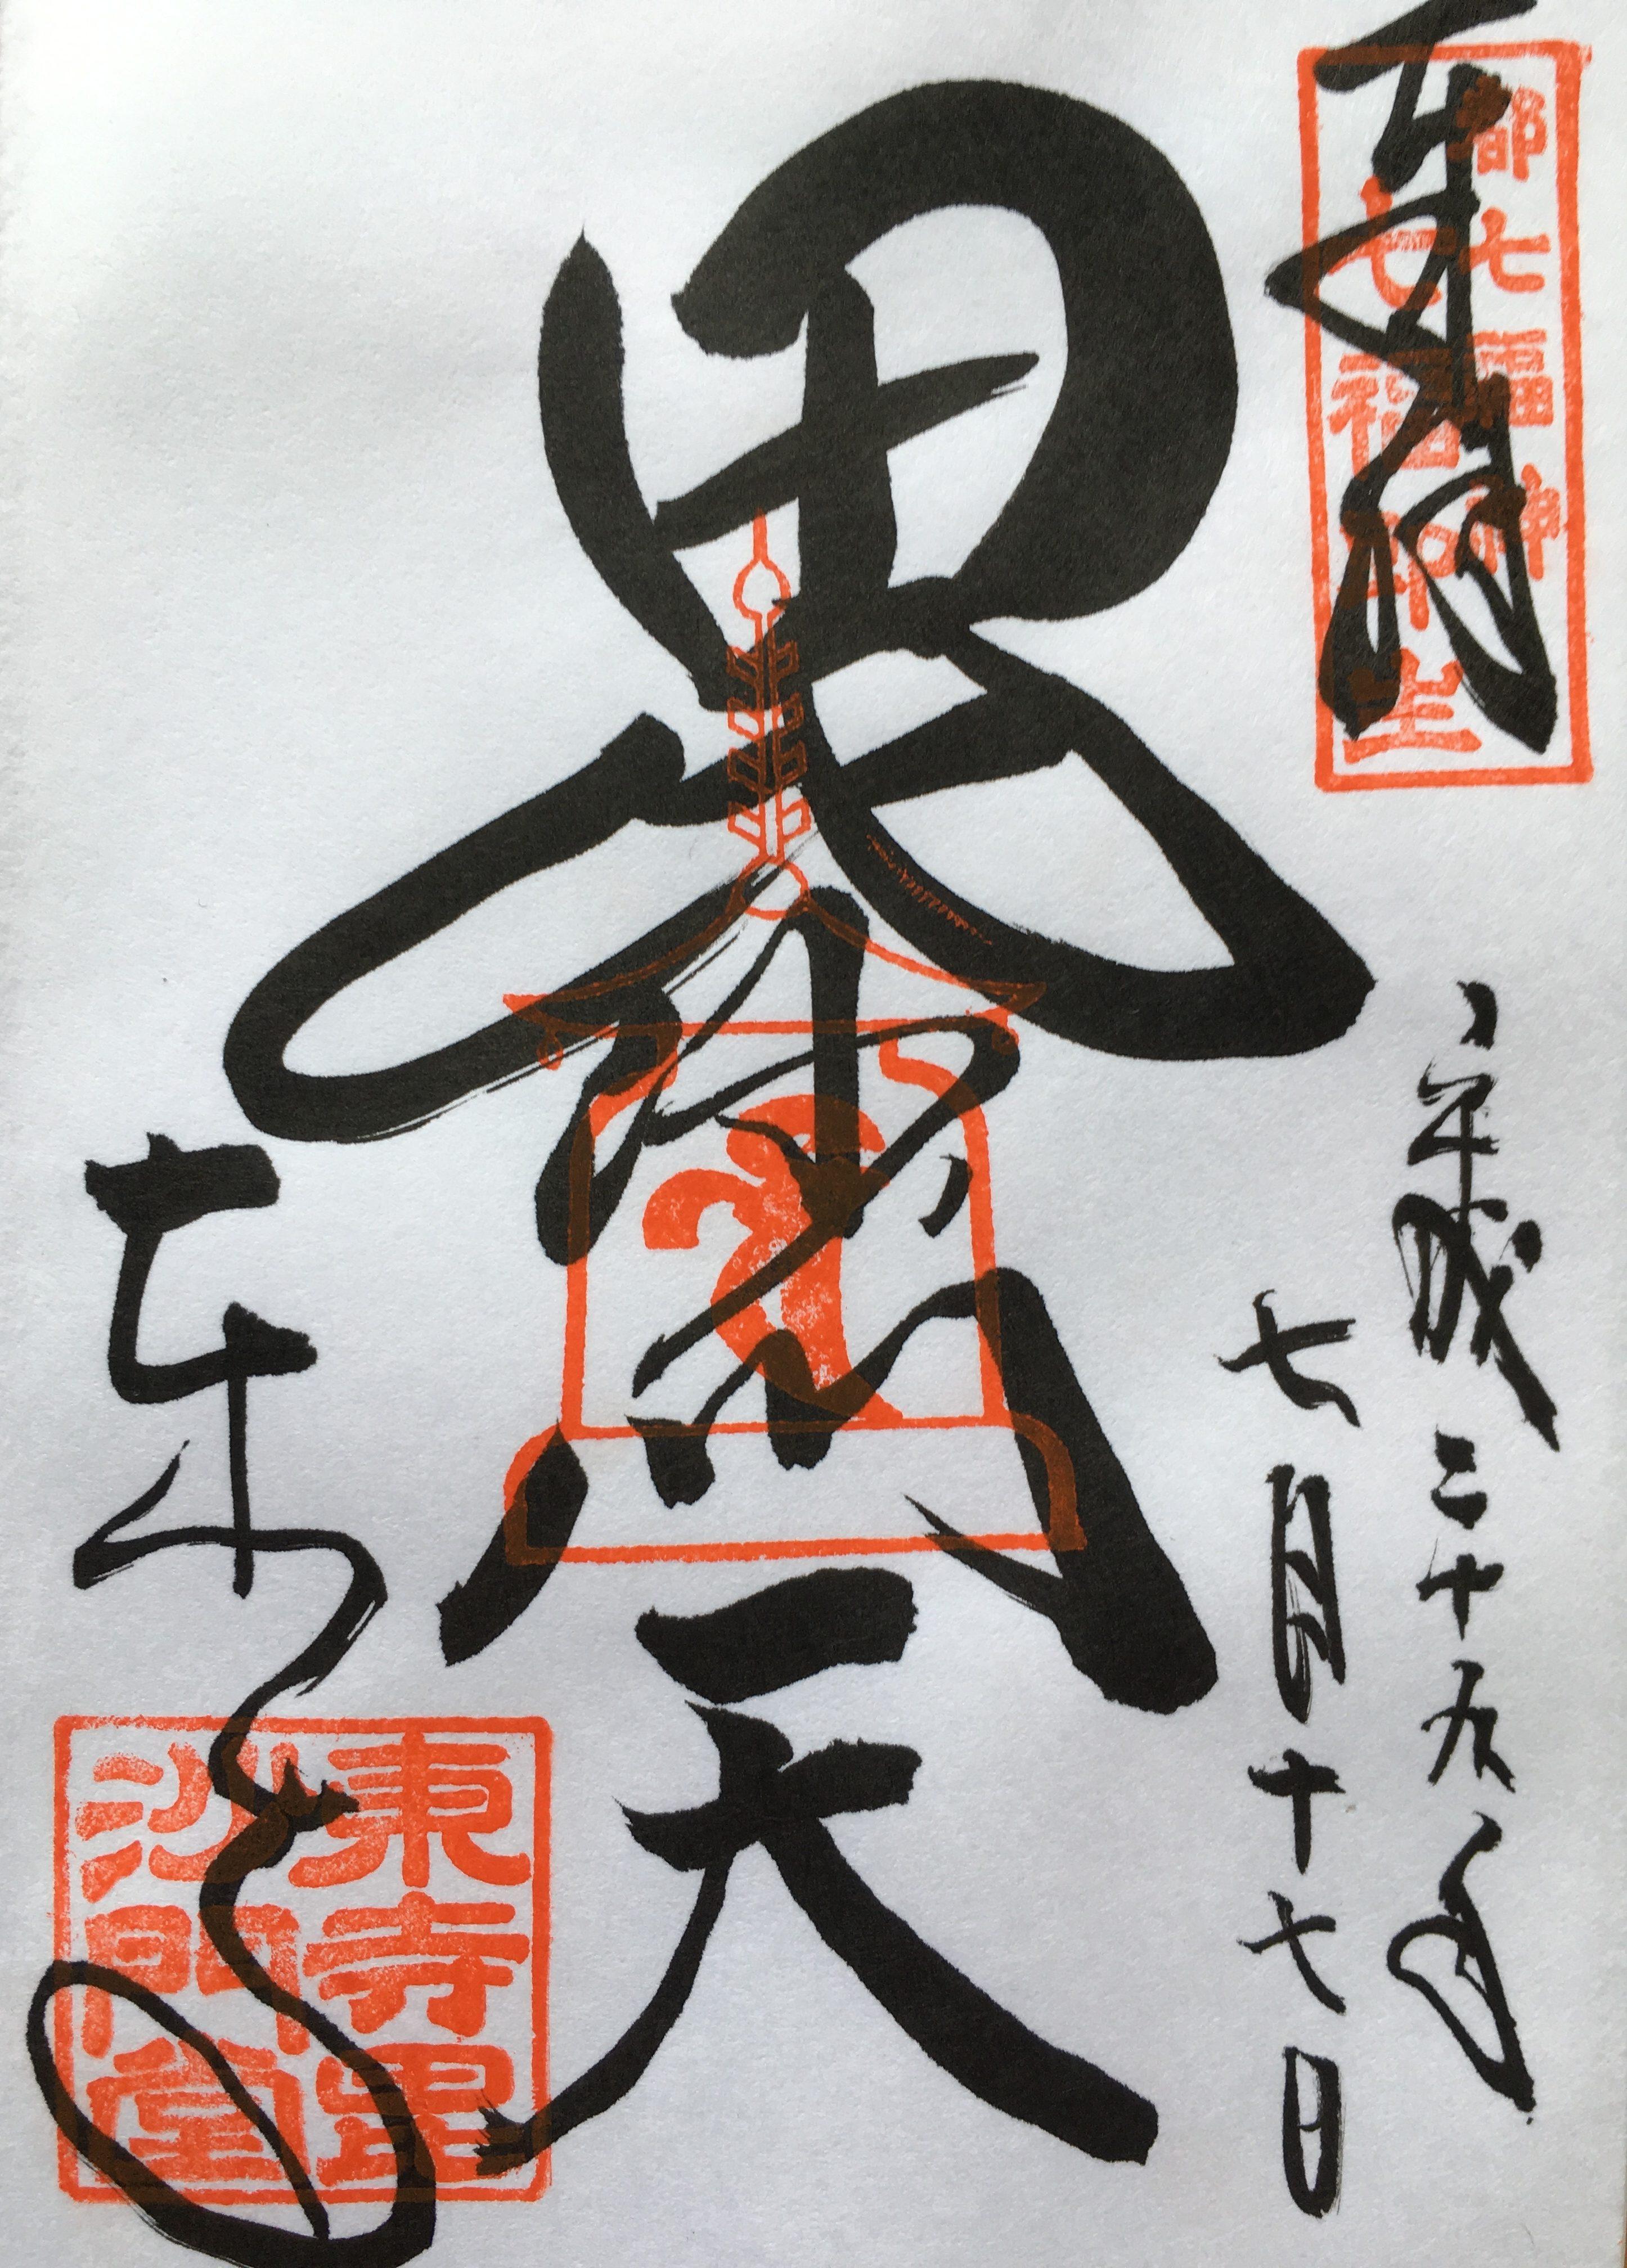 奉拝
都七福神
七福即生
平成二十九年
七月十七日
毘沙門天
東寺
東寺毘
沙門堂